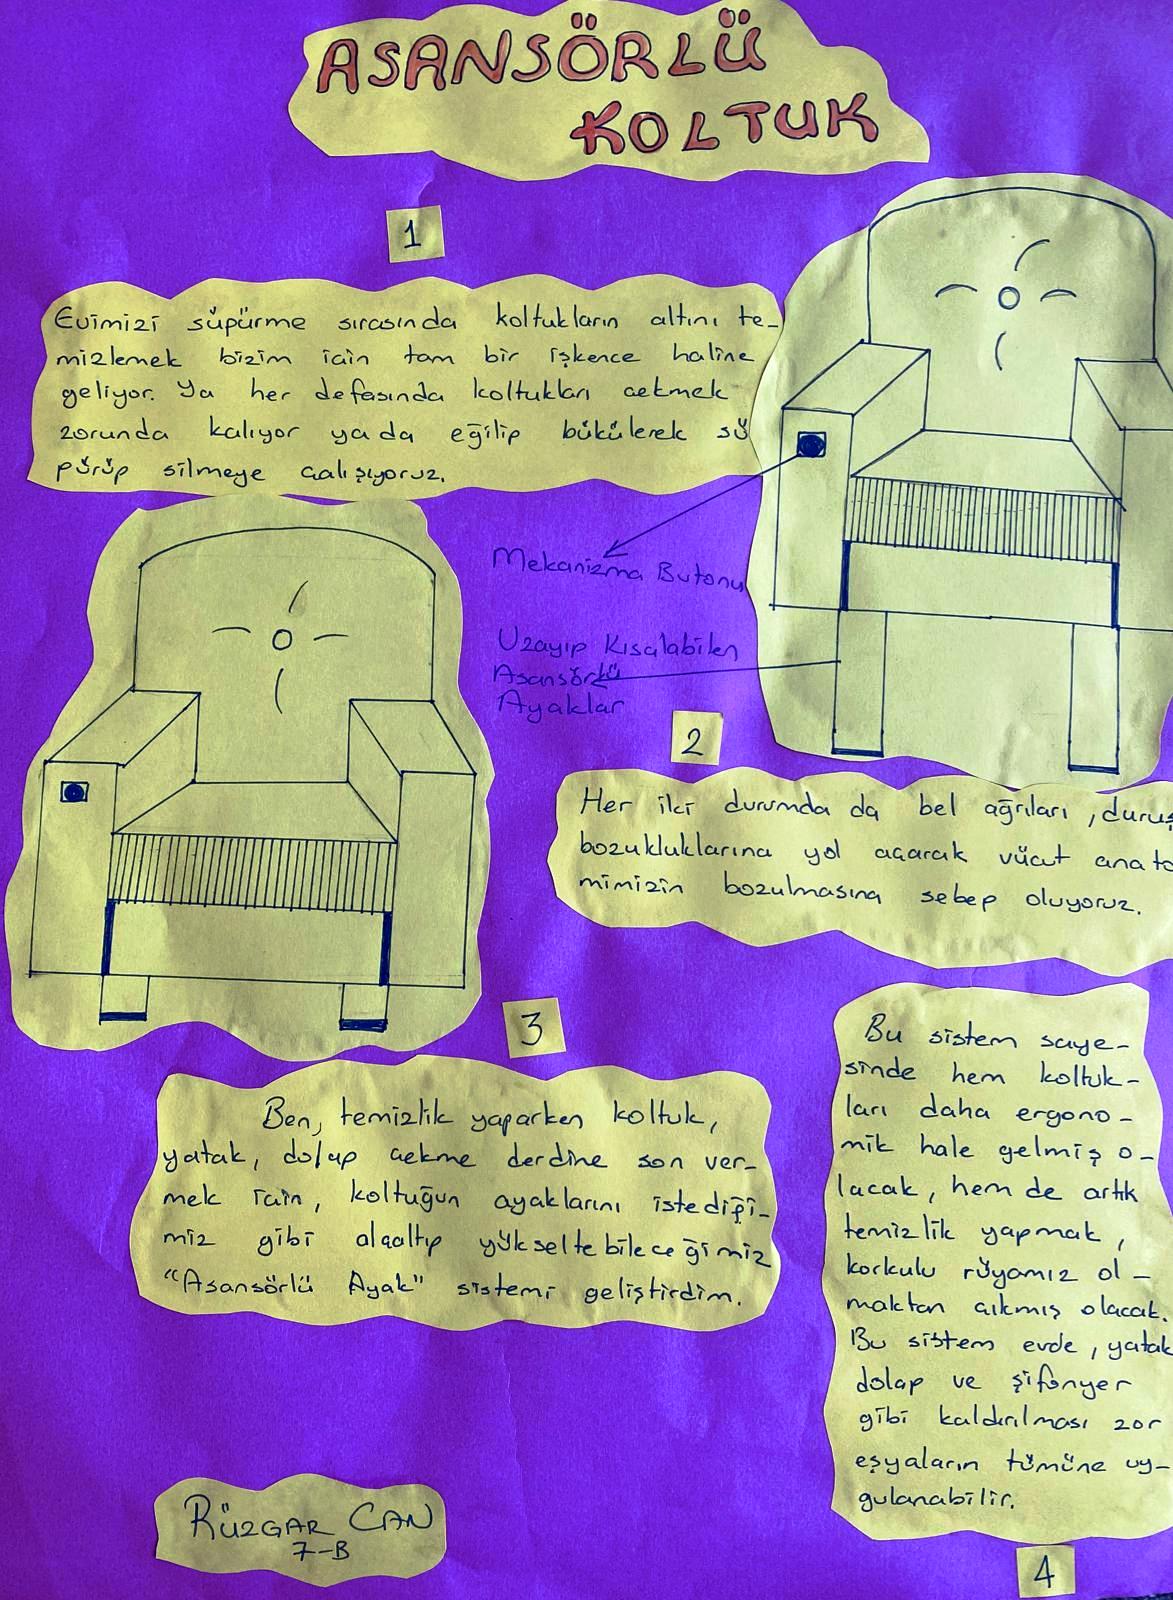 ASANSÖRLÜ
KOLTUK
1
Evimizi süpürme sırasında koltukların altını te-
mizlemek bizim için tam bir işkence haline
geliyor. Ya her defasında koltukları çekmek
zorunda kalıyor ya da eğilip bükülerek sü
pürüp silmeye çalışıyoruz.
Mekanizma Butonu
Uzayıp Kısalabilen
Asansörlü
Ayaklar
2
Her iki durumda da bel ağrıları, duruş
bozukluklarına yol açarak vücut anato
mimizin bozulmasına sebep oluyoruz.
3
Ben, temizlik yaparken koltuk,
yatak, dolap çekme derdine son ver-
mek için, koltuğun ayaklarını istediği-
miz gibi alçaltıp yükseltebileceğimiz
"Asansörlü Ayak" sistemi geliştirdim.
Bu sistem saye-
sinde hem koltuk-
ları daha ergono-
mik hale gelmiş o-
lacak, hem de artık
temizlik yapmak,
korkulu rüyamız ol-
maktan çıkmış olacak.
Bu sistem evde, yatak
dolap ve şifonyer
gibi kaldırılması zor
eşyaların tümüne uy-
gulanabilir.
4
RÜZGAR CAN
7-B